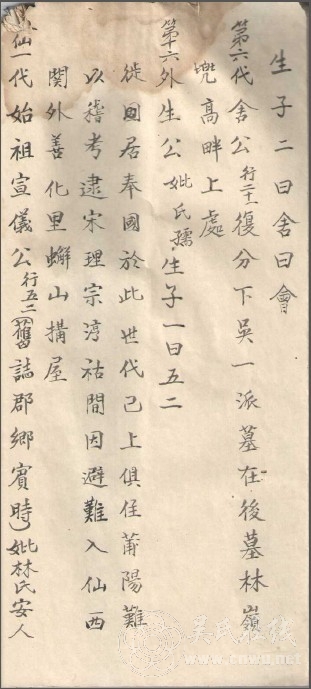 生子二曰舍曰會
第六代舍公行二十三復分下吳一派墓在後墓林嶺
兜高畔上處
第十六外生公妣氏孺生子一曰五二
徙回居奉國於此世代已上俱住莆陽難
以稽考逮宋理宗淳祜間因避難入仙西
関外善化里蠏山搆屋
仙一代始祖宣儀公行五二舊誌郡鄉賓時妣林氏安人
吴氏在线
www.cnwu.net